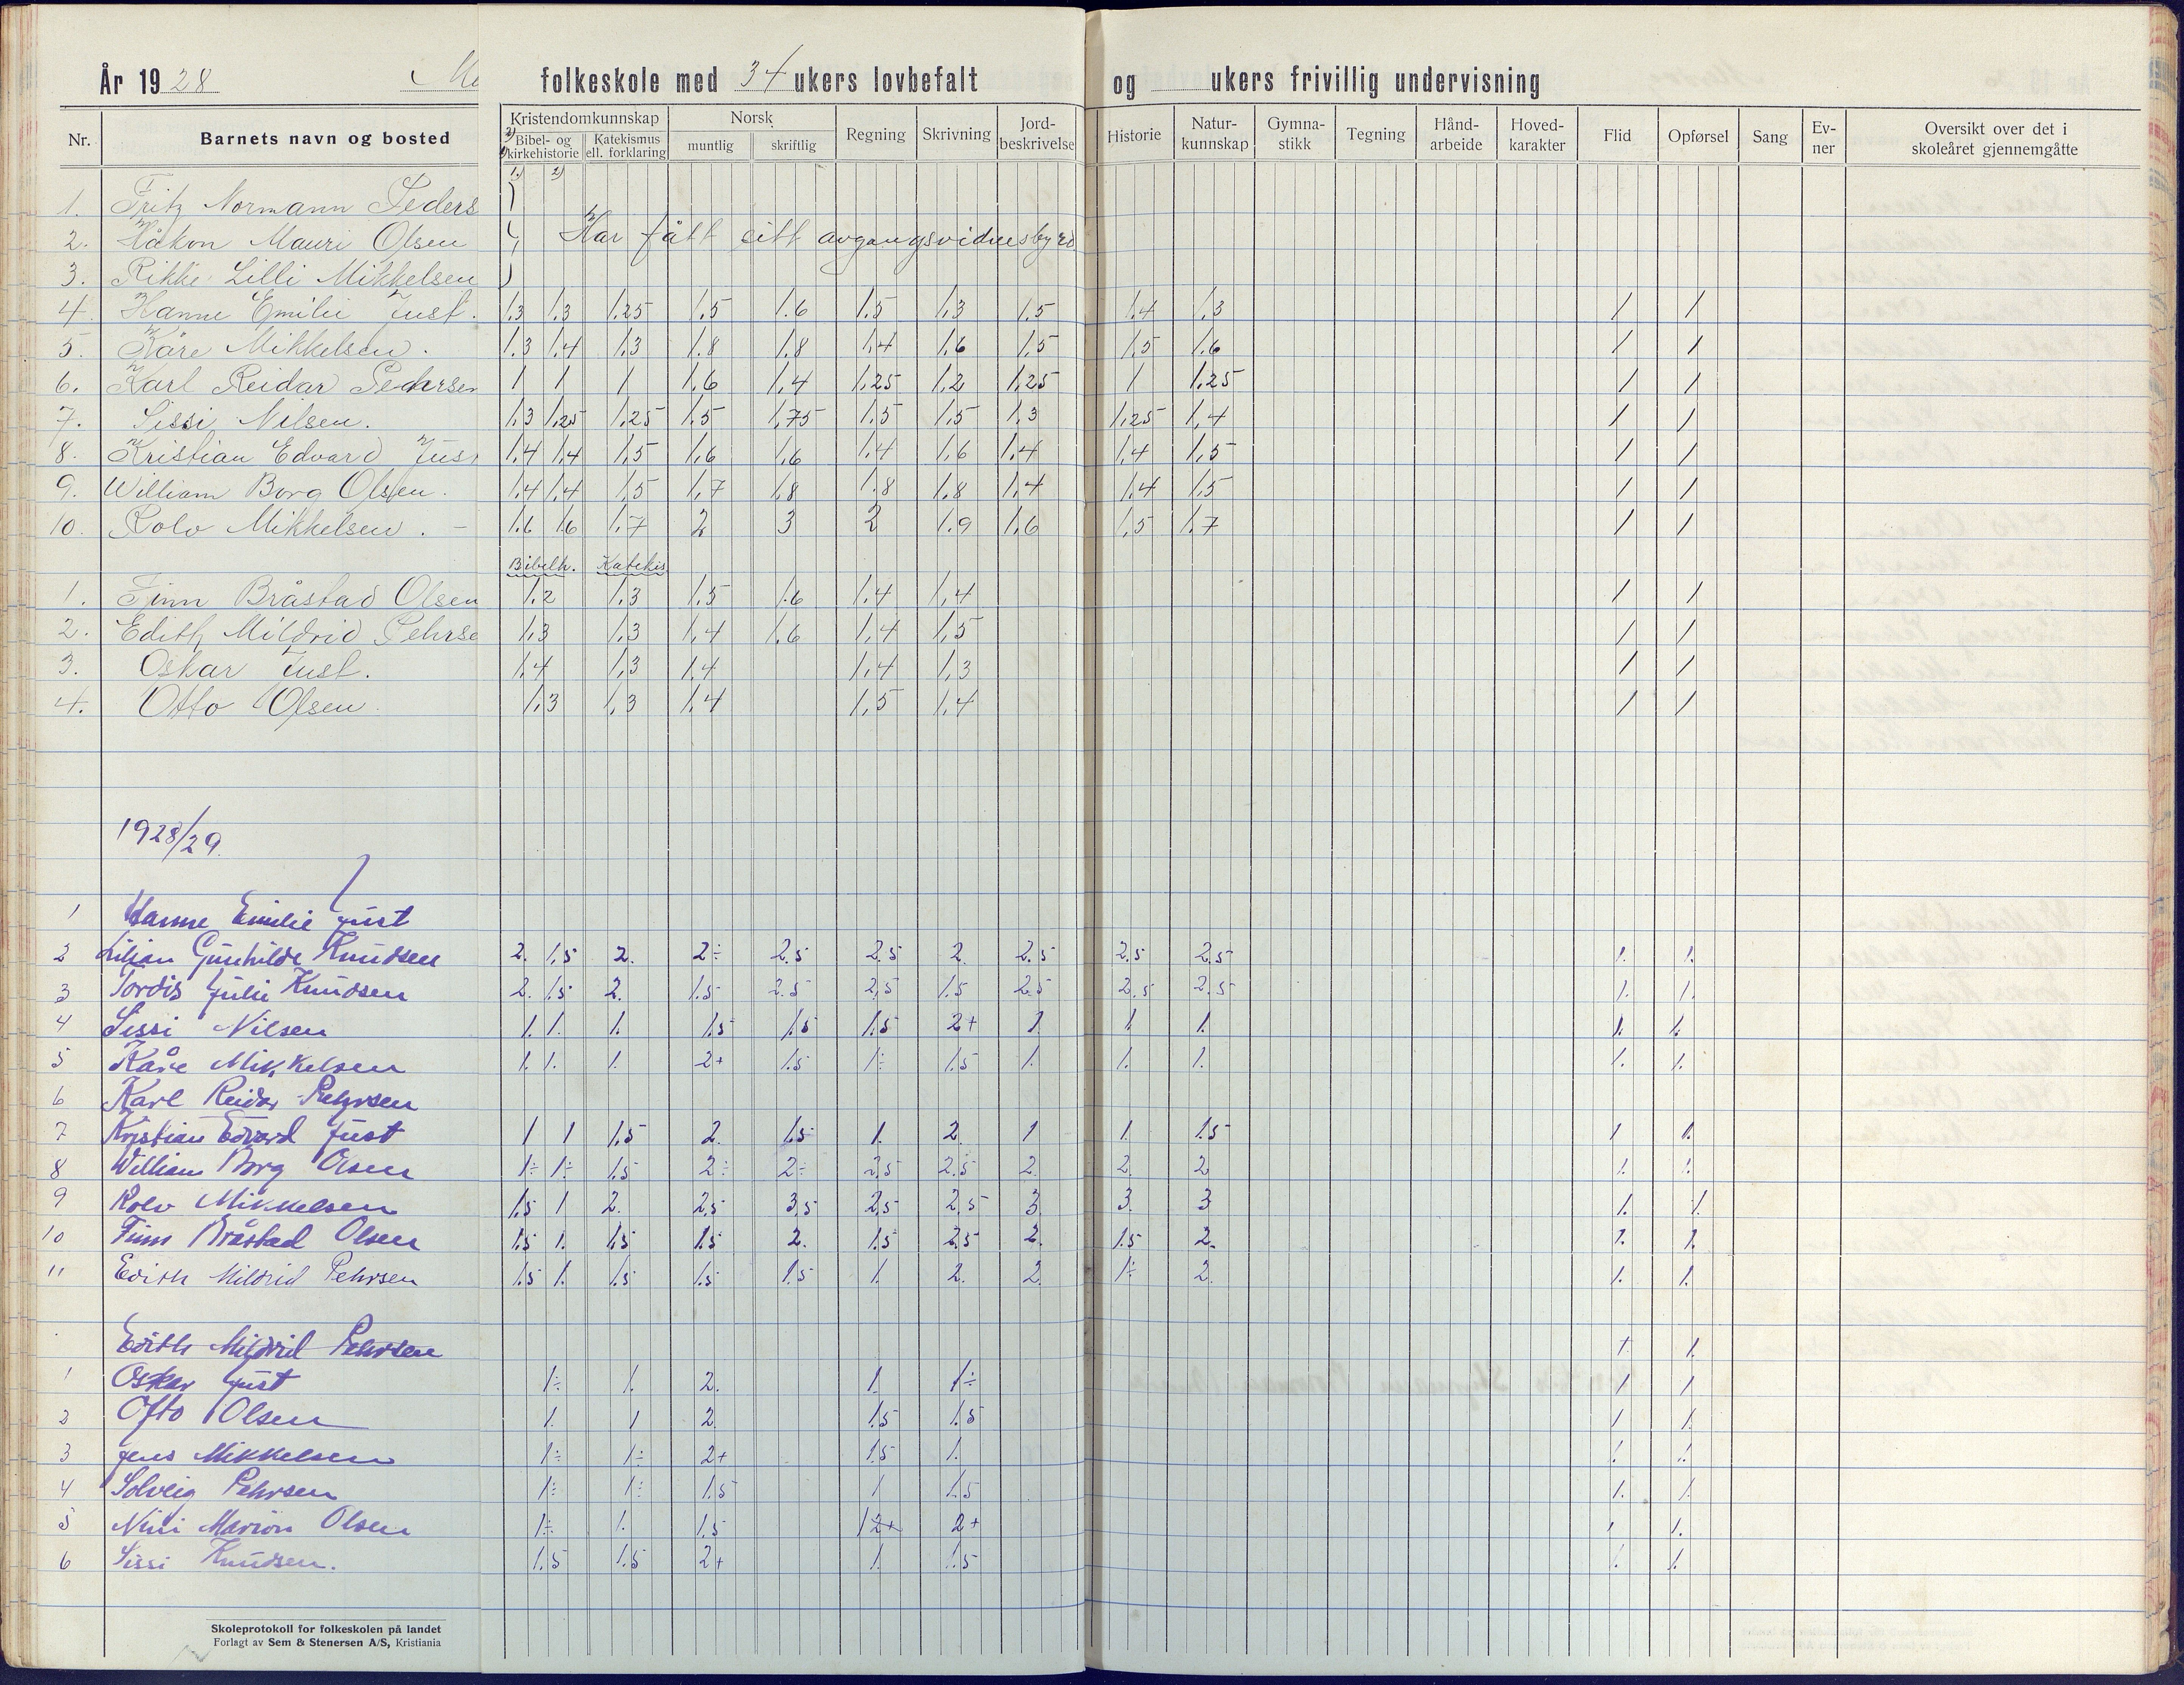 År 19 28 folkeskole med 34 ukers lovbefalt og ukers frivillig undervisning
Nr. Barnets navn og bosted Kristendomkunnskap Norsk Regning Skrivning Jord-beskrivelse Historie Natur-kunnskap Gymna-stikk Tegning Hånd-arbeide Hoved-karakter Flid Opførsel Sang Ev-ner Oversikt over det i skoleåret gjennemgåtte
Bibel- og kirkehistorie Katekismus ell. forklaring muntlig skriftlig
1) 2)
1. Fritz Normann Peders
2. Håkon Mauri Olsen Har fått sitt avgangsvidnesbyrd
3. Rikke Lilli Mikkelsen
4. Hanne Emilie Just. 1,3 1,3 1,25 1,5 1.6 1.5 1,3 1,5 1,4 1,3 1 1
5. Kåre Mikkelsen. 1.3 1,4 1,3 1.8 1,8 1,4 1,6 1,5 1,5 1.6 1 1
6. Karl Reidar Pedersen 1 1 1 1,6 1,4 1,25 1,2 1,25 1 1,25 1 1
7. Sissi Nilsen. 1,3 1,25 1,25 1,5 1,75 1,5 1,5 1,3 1,25 1,4 1 1
8. Kristian Edvard Jus 1,4 1,4 1,5 1,6 1,6 1,4 1,6 1,4 1,4 1,5 1 1
9. William Borg Olsen. 1,4 1,4 1,5 1,7 1,8 1.8 1,8 1,4 1,4 1,5 1 1
10. Rolv Mikkelsen. - 1.6 1.6 1.7 2 3 2 1.9 1,6 1,5 1,7 1 1
Bibelh. Katekis
1. Finn Bråstad Olsen 1.2 1,3 1.5 1.6 1,4 1,4 1 1
2. Edith Mildrid Pehrse 1,3 1,3 1,4 1,6 1,4 1,5 1 1
3. Oskar Just. 1,4 1,3 1,4 1,4 1,3 1 1
4. Otto Olsen. 1,3 1,3 1,4 1,5 1,4 1 1
1928/29.
1 Hanne Emilie Just
2 Lilian Gunhilde Knudsen 2. 1,5 2. 2÷ 2.5 2.5 2. 2.5 2.5 2.5 1. 1.
3 Tordis Julie Knudsen 2. 1.5 2. 1.5 2.5 2,5 1.5 2.5 2.5 2.5 1. 1.
4 Sissi Nilsen 1. 1. 1. 1.5 1.5 1.5 2+ 1 1 1. 1. 1.
5 Kåre Mikkelsen 1. 1. 1. 2+ 1.5 1÷ 1.5 1. 1. 1. 1. 1.
6 Karl Reidar Pehrsen
7 Kristian Edvard Just 1 1 1.5 2. 1.5 1. 2. 1 1. 1.5 1 1.
8 William Borg Olsen 1÷ 1÷ 1.5 2÷ 2÷ 2,5 2.5 2. 2. 2 1. 1.
9 Rolv Mikkelsen 1.5 1 2. 2,5 3,5 2,5 2,5 3. 3. 3 1. 1.
10 Finn Bråstad Olsen 1.5 1. 1.5 1.5 2. 1.5 2.5 2. 1.5 2. 1. 1.
11 Edith Mildrid Pehrsen 1.5 1. 1.5 1.5 1.5 1. 2. 2. 1÷ 2. 1. 1.
Edith Mildrid Pehrsen 1. 1.
1 Oskar Just 1÷ 1. 2. 1. 1÷ 1 1
2 Otto Olsen 1. 1 2. 1.5 1.5 1 1.
3 Jens Mikkelsen 1÷ 1÷ 2+ 1.5 1. 1. 1.
4 Solveig Pehrsen 1÷ 1÷ 1.5 1 1.5 1. 1.
5 Nini Marion Olsen 1÷ 1. 1.5 1 2+ 2+ 1 1.
6 Sissi Knudsen. 1.5 1.5 2+ 1 1.5 1. 1.
Skoleprotokoll for folkeskolen på landet
Forlagt av Sem & Stenersen A/S, Kristiania